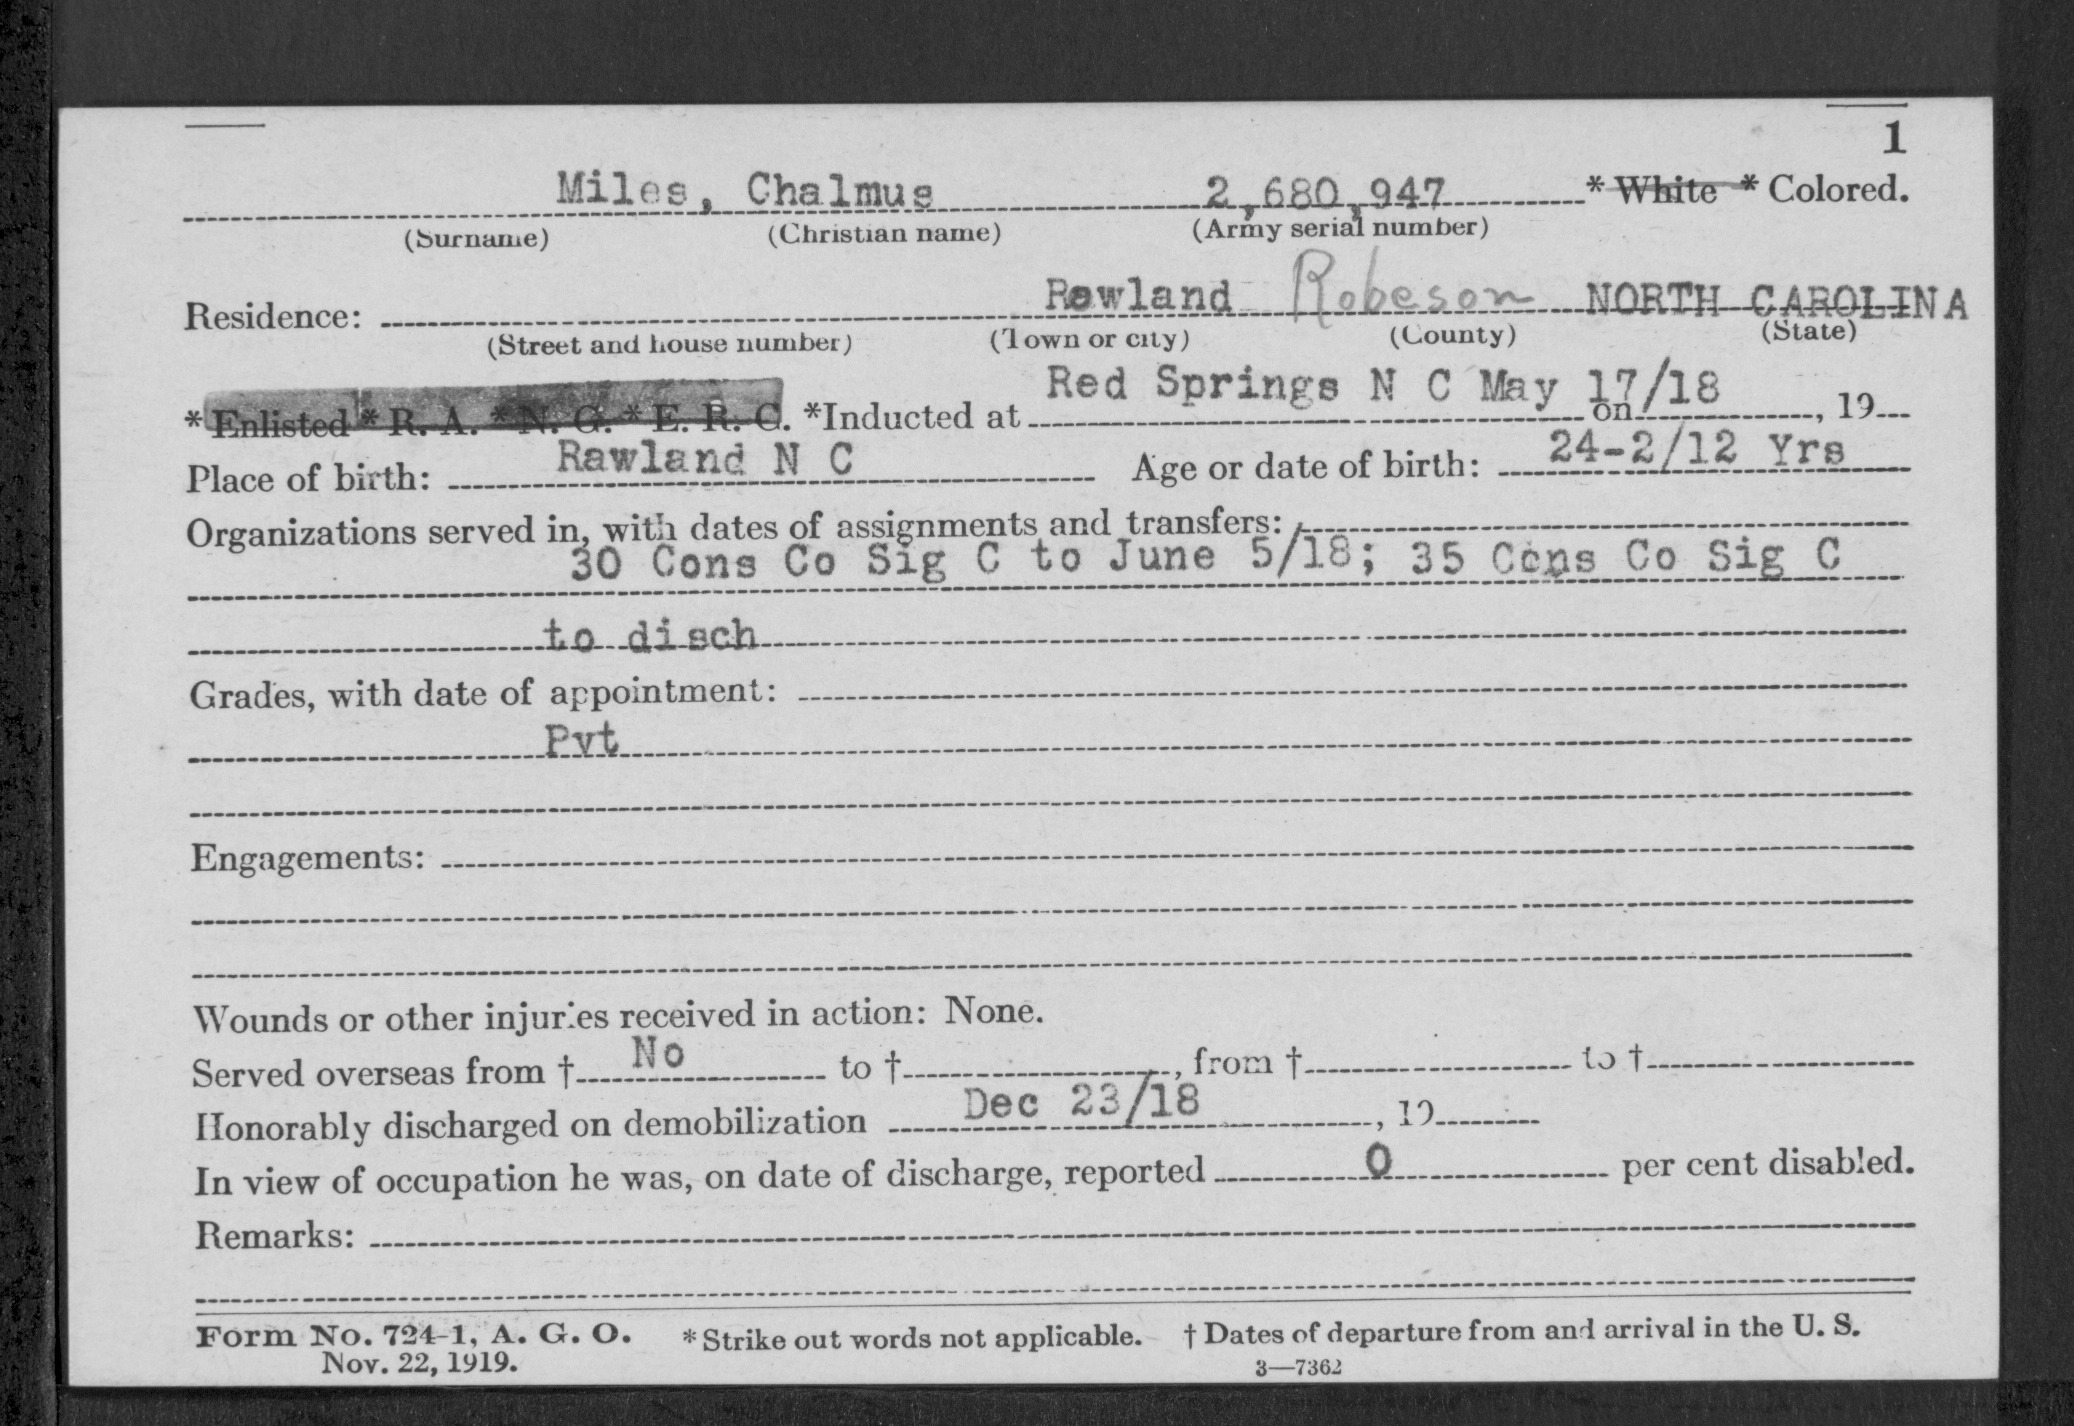 1
Miles, Chalmus 2,680,947 * White * Colored.
(Surname) (Christian name) (Army serial number)
Residence: Rowland Robeson NORTH CAROLINA
(Street and house number) (Town or city) (County) (State)
* Enlisted * R. A. * N. G. * E. R. C. *Inducted at Red Springs N C May 17/18 on , 19
Place of birth: Rawland N C Age or date of birth: 24-2/12 Yrs
Organizations served in, with dates of assignments and transfers:
30 Cons Co Sig C to June 5/18; 35 Cons Co Sig C
to disch
Grades, with date of appointment:
Pvt
Engagements:
Wounds or other injuries received in action: None.
Served overseas from † No to † , from † to †
Honorably discharged on demobilization Dec 23/18 , 19
In view of occupation he was, on date of discharge, reported 0 per cent disabled.
Remarks:
Form No. 724-1, A. G. O. * Strike out words not applicable. † Dates of departure from and arrival in the U. S.
Nov. 22, 1919. 3—7362